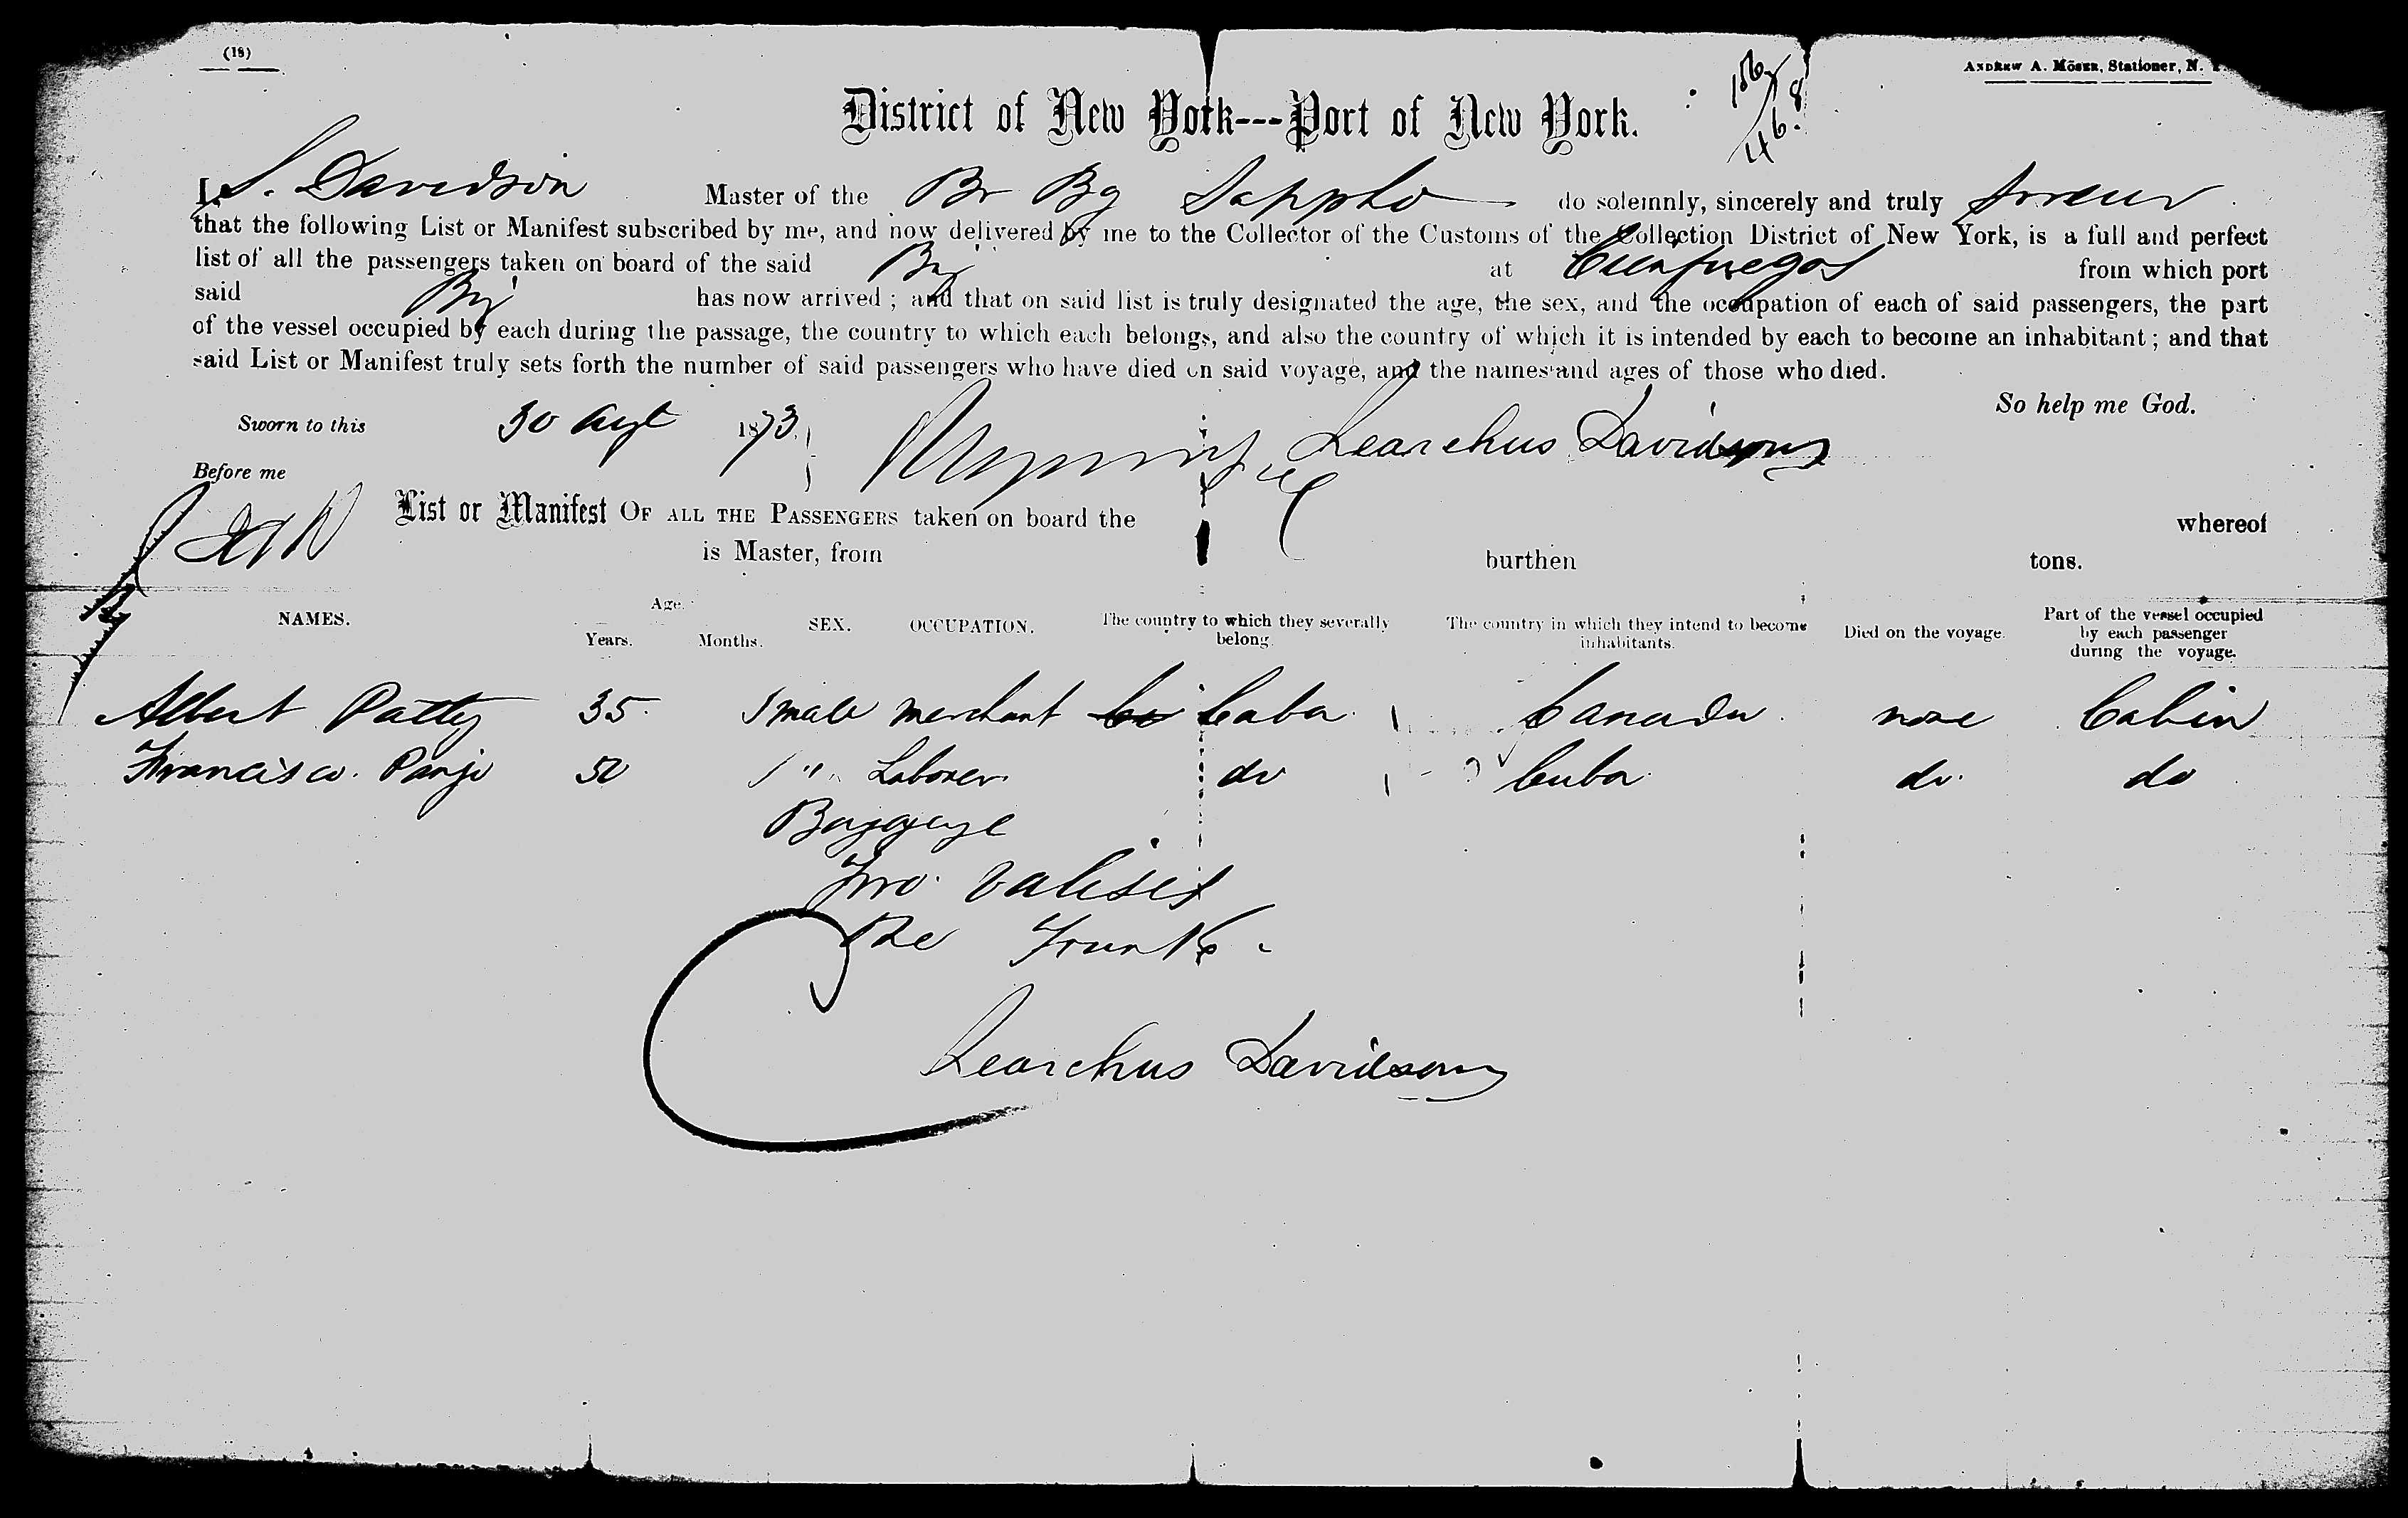 (18)
ANDREW A. MÖSER, Stationer, N. Y.
District of New York---Port of New York.
I, S. Davidson Master of the Br Bg Sappho do solemnly, sincerely and truly swear
that the following List or Manifest subscribed by me, and now delivered by me to the Collector of the Customs of the Collection District of New York, is a full and perfect
list of all the passengers taken on board of the said Brig at Cienfuegos from which port
said Brig has now arrived ; and that on said list is truly designated the age, the sex, and the occupation of each of said passengers, the part
of the vessel occupied by each during the passage, the country to which each belongs, and also the country of which it is intended by each to become an inhabitant ; and that
said List or Manifest truly sets forth the number of said passengers who have died on said voyage, and the names and ages of those who died.
So help me God.
Sworn to this 30 Augt 1873. Learchus Davidson
Before me
List or Manifest OF ALL THE PASSENGERS taken on board the whereof
is Master, from burthen tons.
NAMES. Age. Years. Months. SEX. OCCUPATION. The country to which they severally belong. The country in which they intend to become inhabitants. Died on the voyage. Part of the vessel occupied by each passenger during the voyage.
Albert Patty 35 male merchant Cuba Canada none Cabin
Francisco. Panjo 50 " Laborer do Cuba do. do
Baggage
Two valises
One Trunk
Learchus Davidson